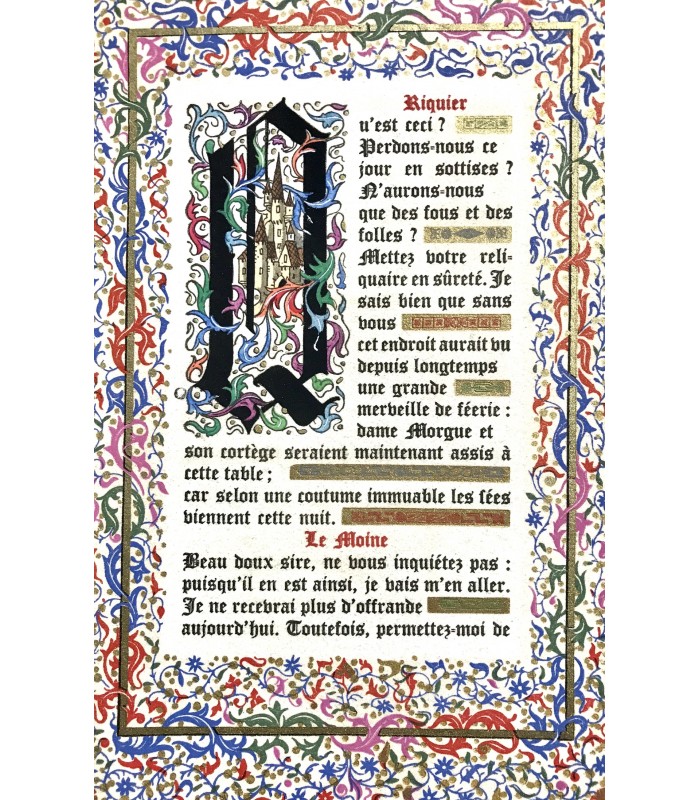 Riquier
Qu'est ceci ?
Perdons-nous ce
jour en sottises ?
N'aurons-nous
que des fous et des
folles ?
Mettez votre reli-
quaire en sûreté. Je
sais bien que sans
vous
cet endroit aurait vu
depuis longtemps
une grande
merveille de féerie :
dame Morgue et
son cortège seraient maintenant assis à
cette table ;
car selon une coutume immuable les fées
viennent cette nuit.
Le Moine
Beau doux sire, ne vous inquiétez pas :
puisqu'il en est ainsi, je vais m'en aller.
Je ne recevrai plus d'offrande
aujourd'hui. Toutefois, permettez-moi de